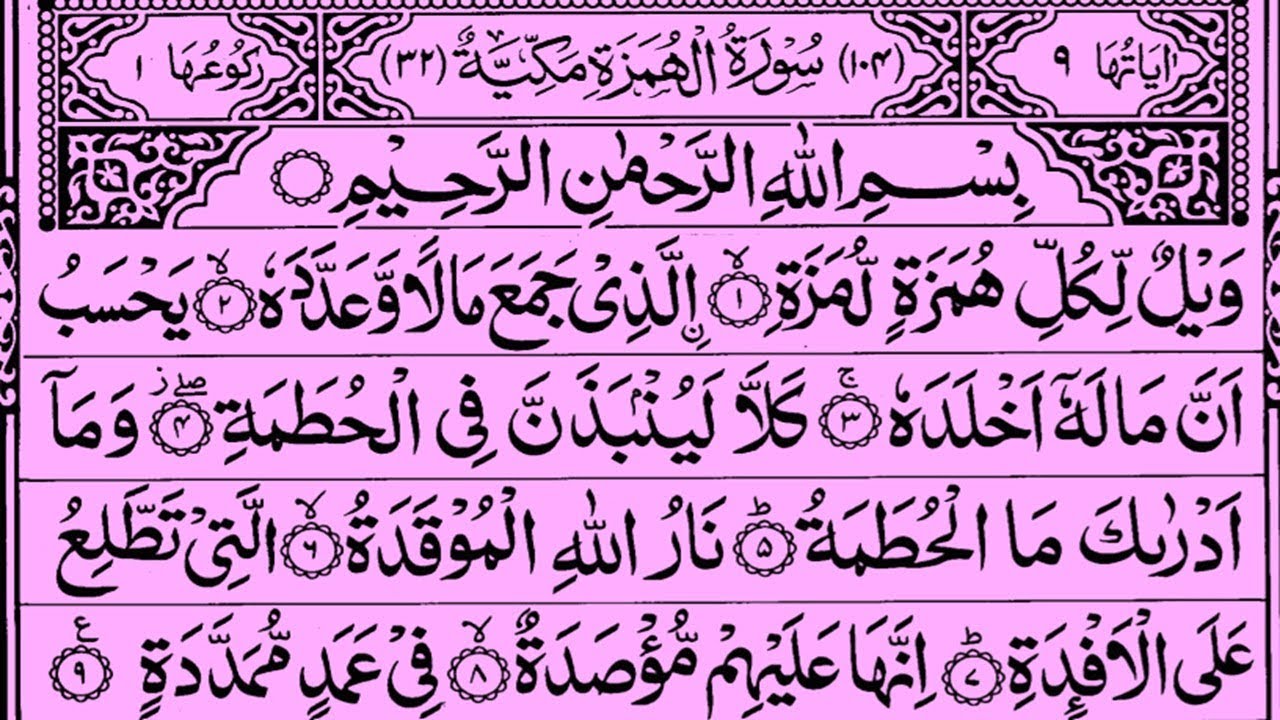 اٰيَاتُهَا ٩ (١٠٤) سُوْرَةُ الْهُمَزَةِ مَكِّيَّةٌ (٣٢) رَكُوْعُهَا ١
بِسْمِ اللّٰهِ الرَّحْمٰنِ الرَّحِيْمِ
وَيْلٌ لِّكُلِّ هُمَزَةٍ لُّمَزَةِ ۙ﴿١﴾ اِۨلَّذِىْ جَمَعَ مَالًا وَّعَدَّدَهٗ ۙ﴿٢﴾ يَحْسَبُ
اَنَّ مَالَهٗۤ اَخْلَدَهٗ ۚ﴿٣﴾ كَلَّا لَيُنْۢبَذَنَّ فِى الْحُطَمَةِ ۖ ز ﴿۴﴾ وَمَاۤ
اَدْرٰىكَ مَا الْحُطَمَةُ ؕ﴿۵﴾ نَارُ اللّٰهِ الْمُوْقَدَةُ ۙ﴿۶﴾ الَّتِىْ تَطَّلِعُ
عَلَى الْاَفْـِٕدَةِ ؕ﴿٧﴾ اِنَّهَا عَلَيْهِمْ مُّؤْصَدَةٌ ۙ﴿٨﴾ فِىْ عَمَدٍ مُّمَدَّدَةٍ ﴿٩﴾ ع